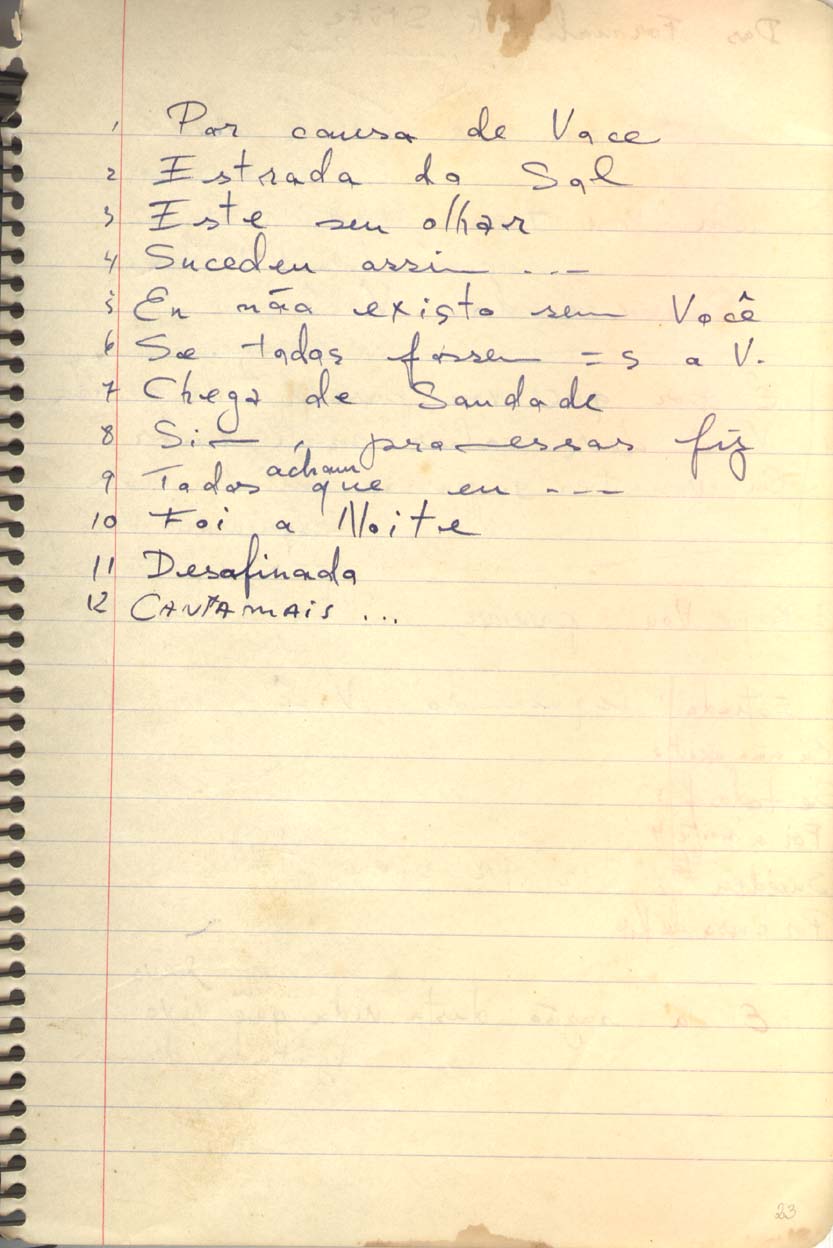 1 Por causa de Voce
2 Estrada do Sol
3 Este seu olhar
4 Sucedeu assim ...
5 Eu não existo sem Você
6 Se todos fossem = s a V.
7 Chega de Saudade
8 Sim, promessas fiz
9 Todos acham que eu ...
10 Foi a Noite
11 Desafinado
12 CANTA MAIS ...
23